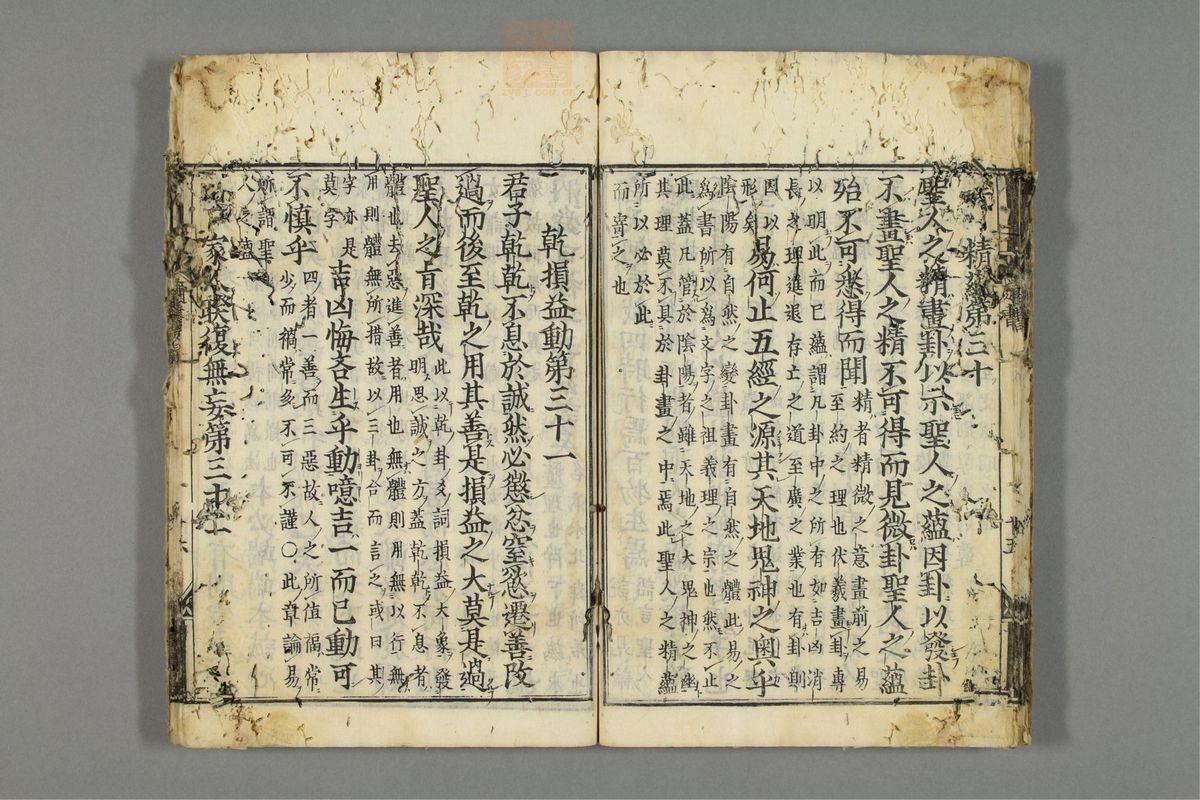 精蘊第三十
聖人之精畫卦以示聖人之蘊因卦以發卦
不畫聖人之精不可得而見微卦聖人之蘊
殆不可悉得而聞
精者精微之意畫前之易
至約之理也伏羲畫卦專
以明此而已蘊謂凡卦中之所有如吉凶消
長之理進退存亡之道至廣之業也有卦則
因以
形矣
易何止五經之源其天地鬼神之奧乎
陰陽有自然之變卦畫有自然之體此易之
為書所以為文字之祖義理之宗也然不止
此蓋凡管於陰陽者雖天地之大鬼神之幽
其理莫不具於卦畫之中焉此聖人之精蘊
所以必於此
而寄之也
五
乾損益動第三十一
君子乾乾不息於誠然必懲忿窒慾遷善改
過而後至乾之用其善是損益之大莫是過
聖人之旨深哉
此以乾卦爻詞損益大象發
明思誠之方蓋乾乾不息者
體也去惡進善者用也無體則用無以行無
用則體無所措故以三卦合而言之或曰其
字亦是
莫字
吉凶悔吝生乎動噫吉一而已動可
不慎乎
四者一善而三惡故人之所值福常
少而禍常多不可不謹〇此章論易
所謂聖
人之蘊
家人睽復無妄第三十二
六